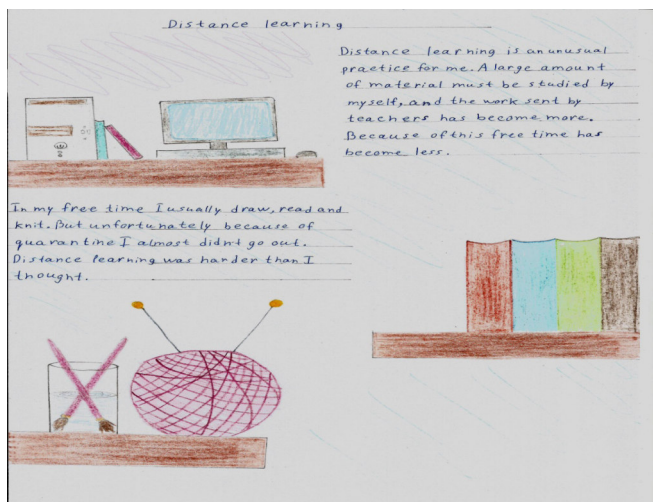 Distance learning
Distance learning is an unusual
practice for me. A large amount
of material must be studied by
myself, and the work sent by
teachers has become more.
Because of this free time has
become less.
In my free time I usually draw, read and
knit. But unfortunately because of
quarantine I almost didn't go out.
Distance learning was harder than I
thought.